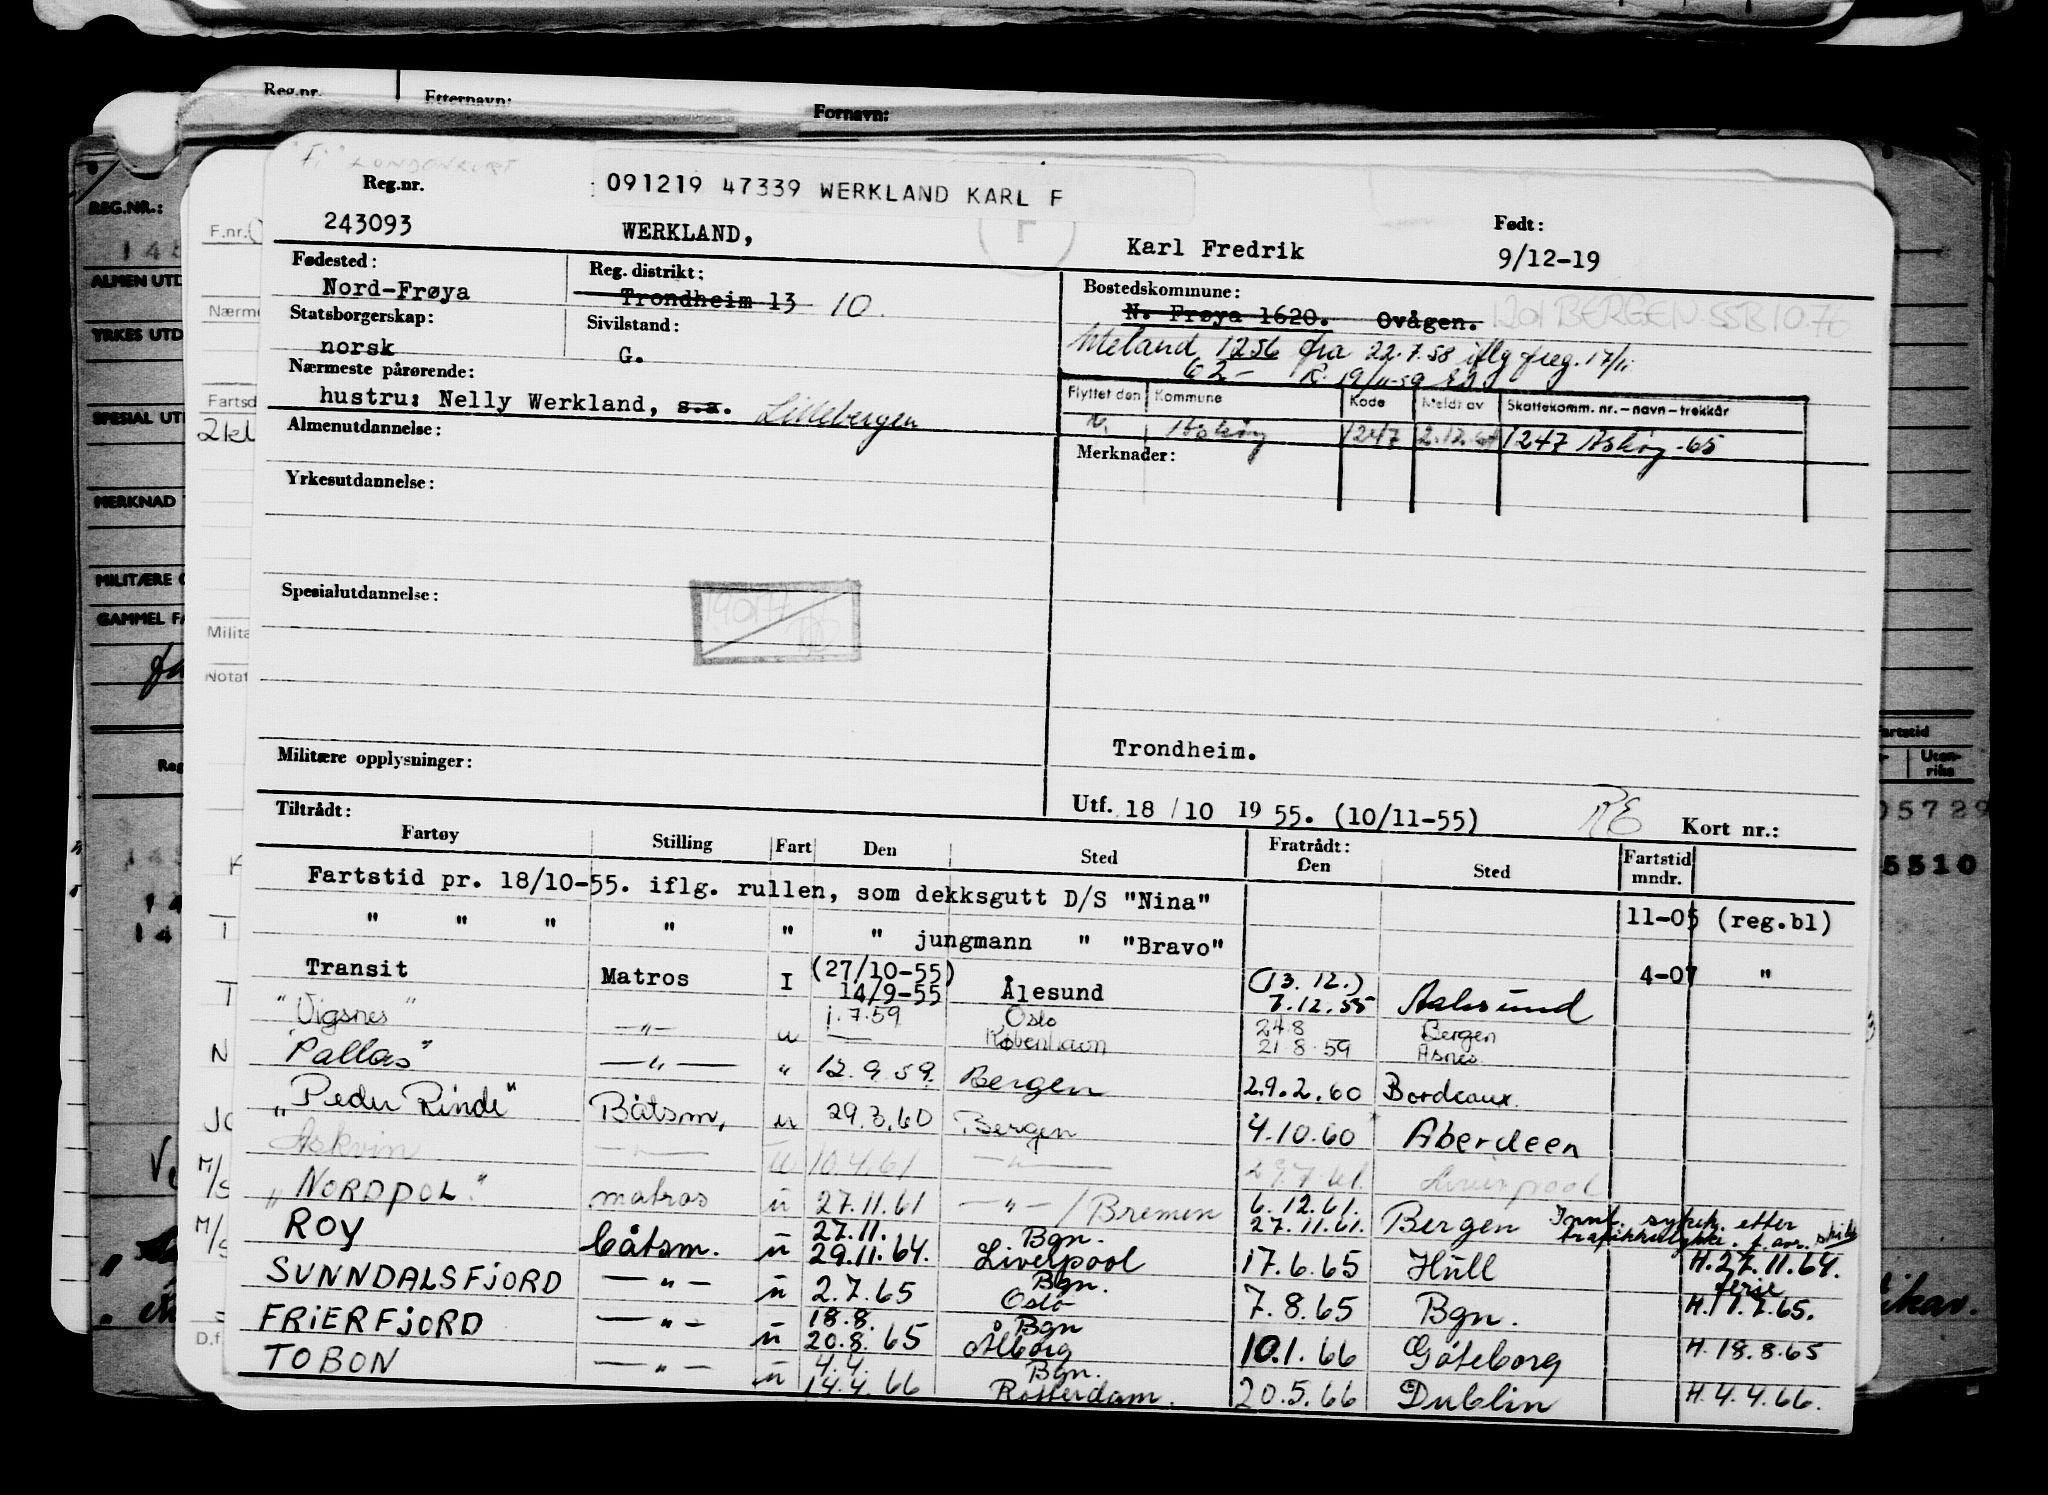 Reg.nr. Etternavn: Fornavn:
"Fi" LONDONKORT
091219 47339 WERKLAND KARL F
Reg.nr. Født:
243093 WERKLAND, F Karl Fredrik 9/12-19
Fødested: Reg. distrikt: Bostedskommune:
Nord-Frøya Trondheim 13 10. N. Frøya 1620. Ovågen. 1201 BERGEN SSB 10.76
Statsborgerskap: Sivilstand: Meland 1256 fra 22.7.58 iflg freg. 17/11
norsk G. 62-
Nærmeste pårørende: Flyttet den Kommune Kode Meldt av Skattekomm. nr. – navn – trekkår
hustru: Nelly Werkland, s.a. Lillebergen
Askøy 1247 2.12.64 1247 Askøy -65
Almenutdannelse: Merknader:
Yrkesutdannelse:
Spesialutdannelse:
190177
Militære opplysninger: Trondheim.
Utf. 18/10 19 55. (10/11-55) RE Kort nr.:
Tiltrådt: Fratrådt:
Fartøy Stilling Fart Den Sted Den Sted Fartstid mndr.
Fartstid pr. 18/10-55. iflg. rullen, som dekksgutt D/S "Nina" 11-05 (reg.bl)
" " " " " " jungmann " "Bravo" 4-07 "
Transit Matros I (27/10-55) 14/9-55 Ålesund (13.12.) 7.12.55 Aalesund
"Vigsnes" —"— u 1.7.59 Oslo 24.8 Bergen
København 21.8.59 Asnes
"Pallas" —"— " 12.9.59. Bergen 29.2.60 Bordeaux.
"Peder Rinde" Båtsm, u 29.3.60 Bergen 4.10.60 Aberdeen
Askvin —"— u 10.4.61 —"— 29.7.61. Liverpool
"NORDPOL." matros u 27.11.61 —"—/Bremen 6.12.61. 27.11.61. Bergen
ROY båtsm. u 27.11. 29.11.64. Bgn. Liverpool 17.6.65 Hull H.27.11.64.
SUNNDALSFJORD —"— u 2.7.65 Bgn. Oslo 7.8.65 Bgn. ferie H.1.7.65.
FRIERFJORD —"— u 18.8. 20.8.65 Bgn Ålborg 10.1.66 Göteborg H.18.8.65
TOBON —"— u 4.4. 14.4.66 Bgn. Rotterdam. 20.5.66 Dublin H.4.4.66.
REG.NR.:
ALMEN UTD
YRKES UTD
SPESIAL UT
MERKNAD
MILITÆRE
GAMMEL FA
F.nr.
Nærme
Fartsd
2kl
Milita
Notat
Fartstid
Uten-riks
05729
5510